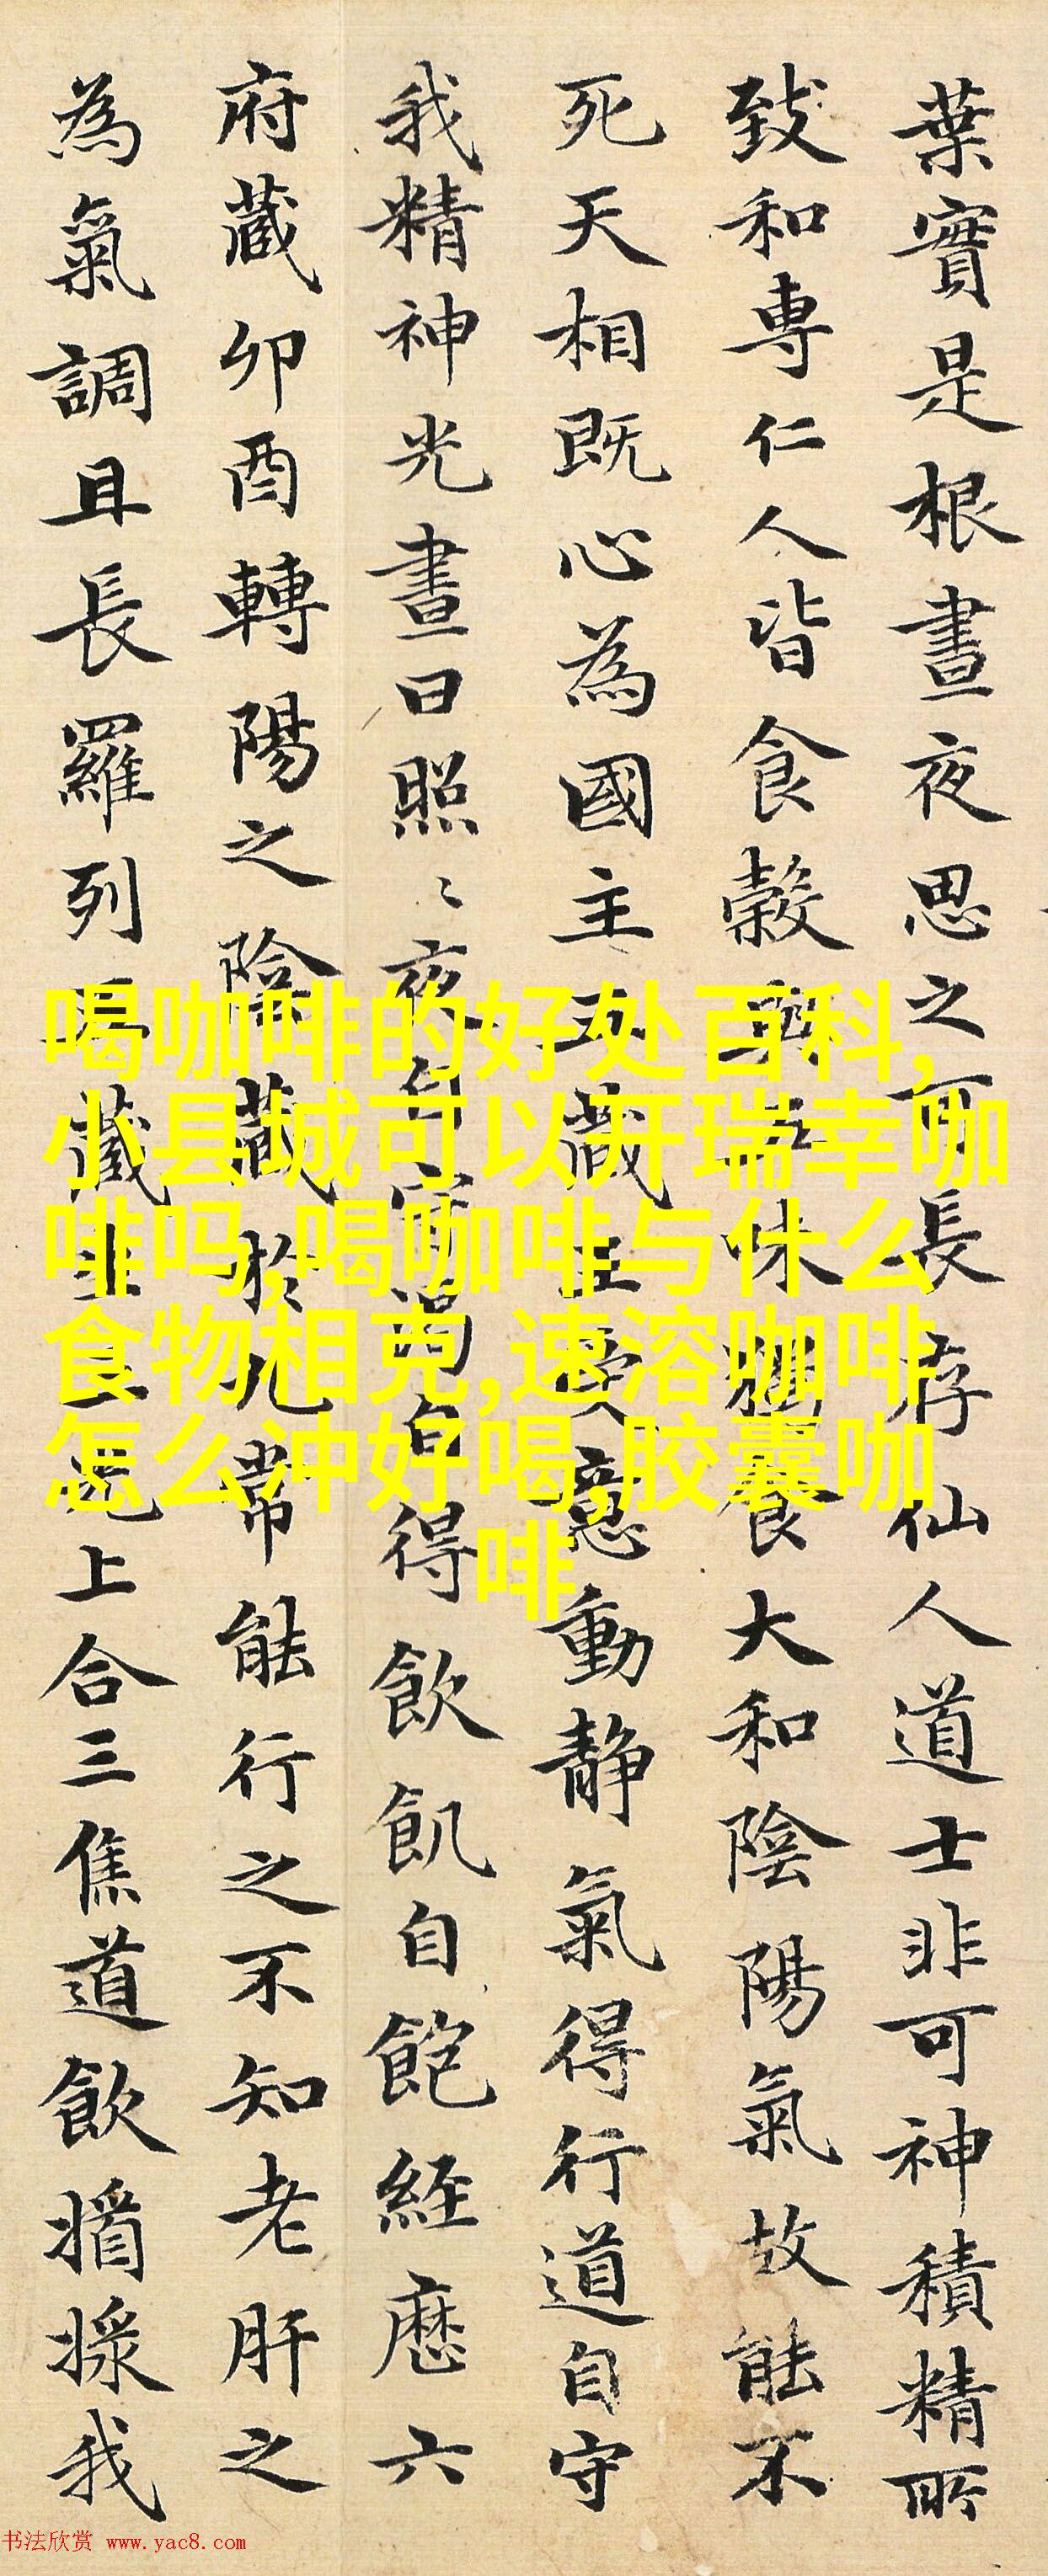 葉實是根晝夜思之可長存仙人道士非可神積精所
致和專仁人皆食穀與五味獨食大和陰陽氣故能不
死天相既心為國主五藏主受意動靜氣得行道自守
我精神光晝日照〻夜自守渴自得飲飢自飽經歷六
府藏卯酉轉陽之陰藏於九常能行之不知老肝之
為氣調且長羅列五藏主三光上合三焦道飲撨採我
喝咖啡的好处百科,
小县城可以开瑞幸咖
啡吗,喝咖啡与什么
食物相克,速溶咖啡
怎么冲好喝,胶囊咖
啡
书法欣赏 www.yac8.com